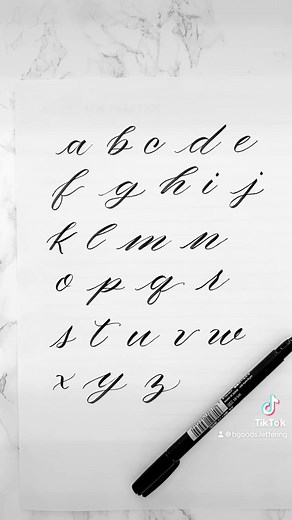 a b c d e
f g h i j
k l m n
o p q r
s t u v w
x y z
TikTok
@bgoods.lettering